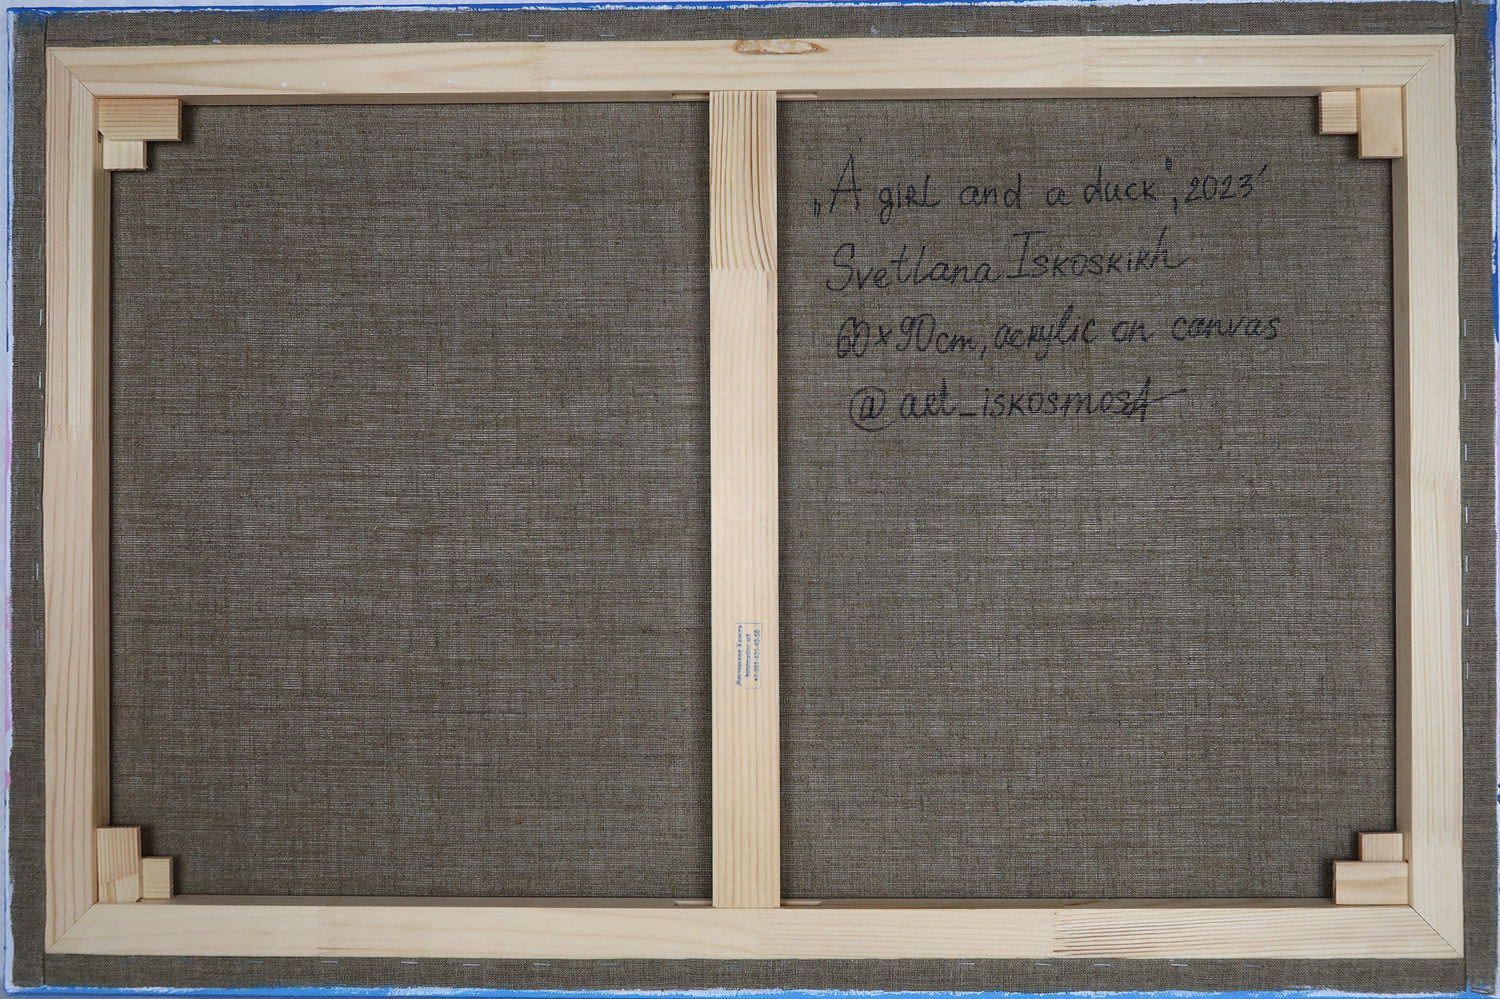 „A girl and a duck", 2023
Svetlana Iskoskikh
60×90cm, acrylic on canvas
@art_iskosmosA
Мастерская Холста